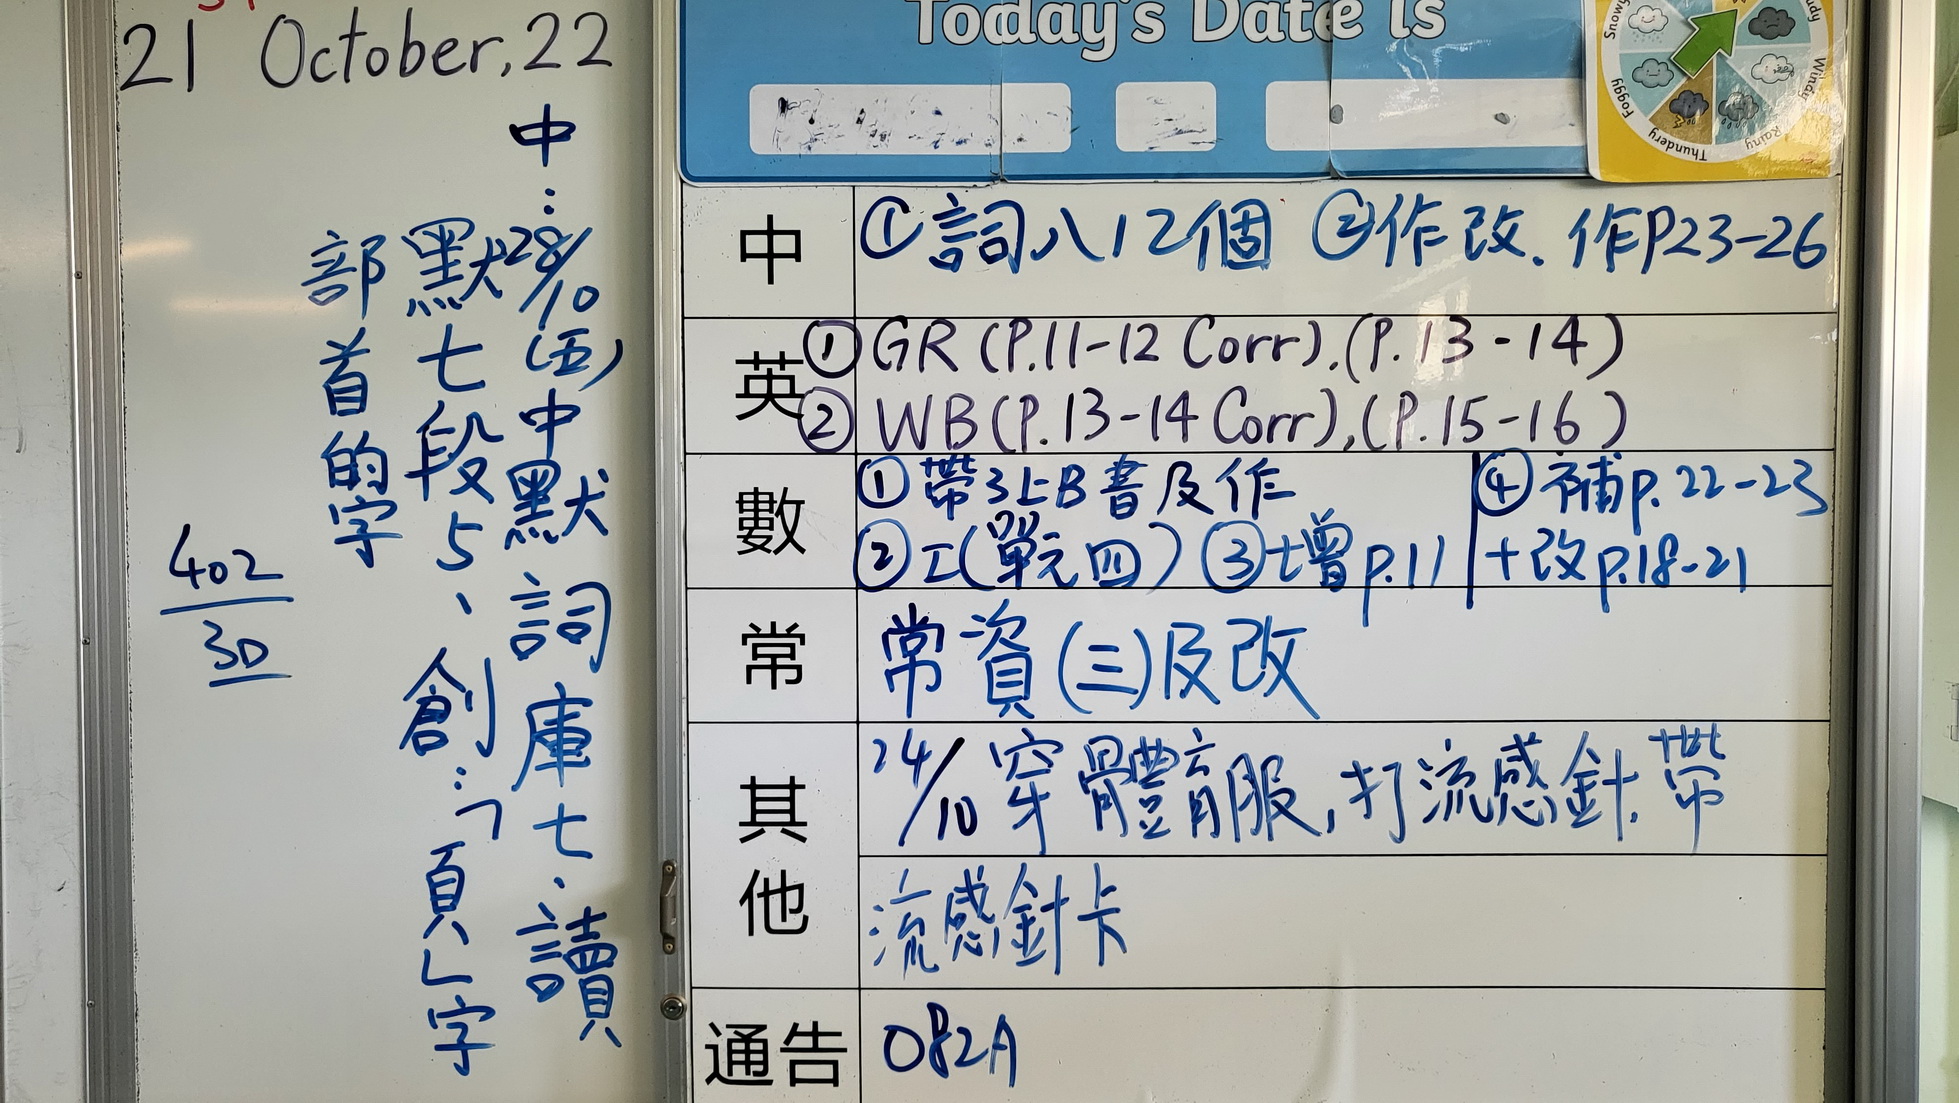 21 October, 22
中：28/10(五)中默詞庫七、讀
默七段5、創：「頁」字
部首的字
402
30
Today's Date is
Snowy
Foggy
Thundery
Rainy
Windy
中 ①詞八12個 ②作改. 作P23-26
英 ①GR (P.11-12 Corr).(P.13-14)
②WB(P.13-14 Corr),(P.15-16)
數 ①帶3上B書及作
②工(單元四) ③土增p.11
④補p.22-23
+改p.18-21
常 常資(三)及改
其他 24/10穿體育服,打流感針,帶
流感針卡
通告 082A